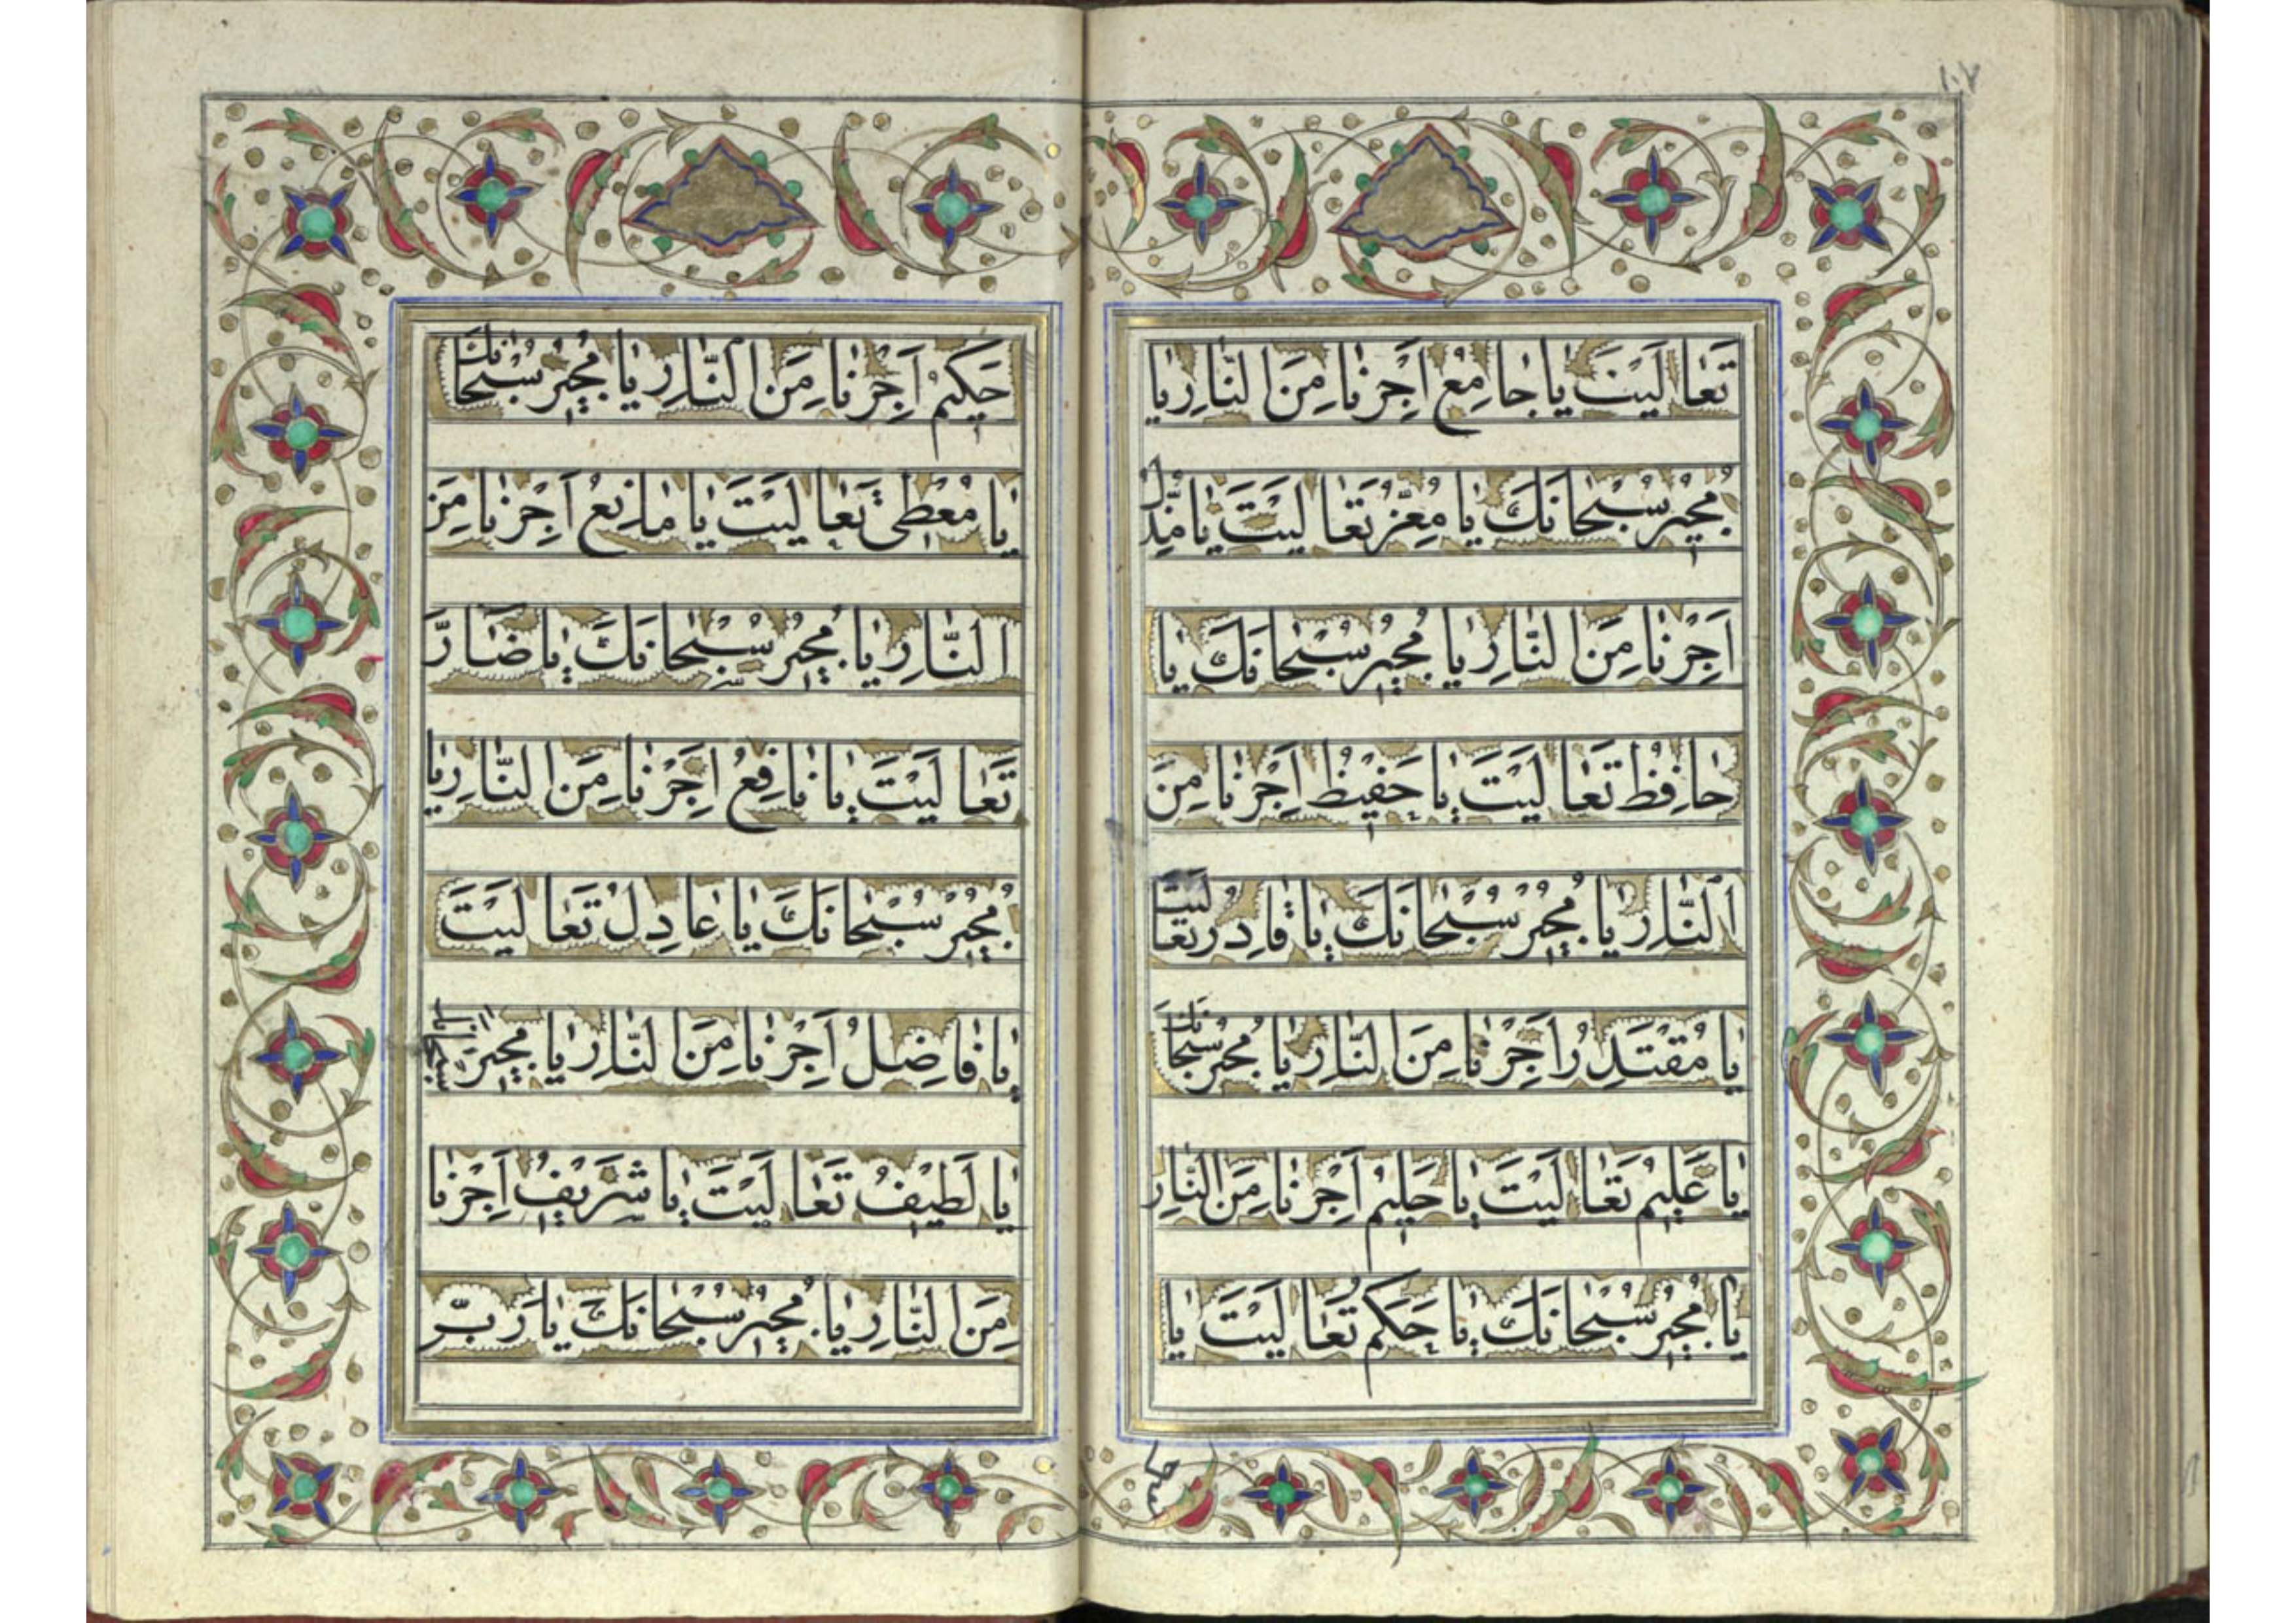 ١٠٧
تَعٰالَيْتَ يٰا جٰامِعُ اَجِرْنٰا مِنَ النّٰارِ يٰا
مُجيٖرُ سُبْحٰانَكَ يٰا مُعِزُّ تَعٰالَيْتَ يٰا مُذِلُّ
اَجِرْنٰا مِنَ النّٰارِ يٰا مُجيٖرُ سُبْحٰانَكَ يٰا
حٰافِظُ تَعٰالَيْتَ يٰا حَفيٖظُ اَجِرْنٰا مِنَ
النّٰارِ يٰا مُجيٖرُ سُبْحٰانَكَ يٰا قٰادِرُ تَعٰالَيْتَ
يٰا مُقْتَدِرُ اَجِرْنٰا مِنَ النّٰارِ يٰا مُجيٖرُ سُبْحٰانَكَ
يٰا عَليٖمُ تَعٰالَيْتَ يٰا حَليٖمُ اَجِرْنٰا مِنَ النّٰارِ
يٰا مُجيٖرُ سُبْحٰانَكَ يٰا حَكَمُ تَعٰالَيْتَ يٰا
حَكيٖمُ اَجِرْنٰا مِنَ النّٰارِ يٰا مُجيٖرُ سُبْحٰانَكَ
يٰا مُعْطيٖ تَعٰالَيْتَ يٰا مٰانِعُ اَجِرْنٰا مِنَ
النّٰارِ يٰا مُجيٖرُ سُبْحٰانَكَ يٰا ضٰارُّ
تَعٰالَيْتَ يٰا نٰافِعُ اَجِرْنٰا مِنَ النّٰارِ يٰا
مُجيٖرُ سُبْحٰانَكَ يٰا عٰادِلُ تَعٰالَيْتَ
يٰا فٰاضِلُ اَجِرْنٰا مِنَ النّٰارِ يٰا مُجيٖرُ سُبْحٰانَكَ
يٰا لَطيٖفُ تَعٰالَيْتَ يٰا شَريٖفُ اَجِرْنٰا
مِنَ النّٰارِ يٰا مُجيٖرُ سُبْحٰانَكَ يٰا رَبُّ